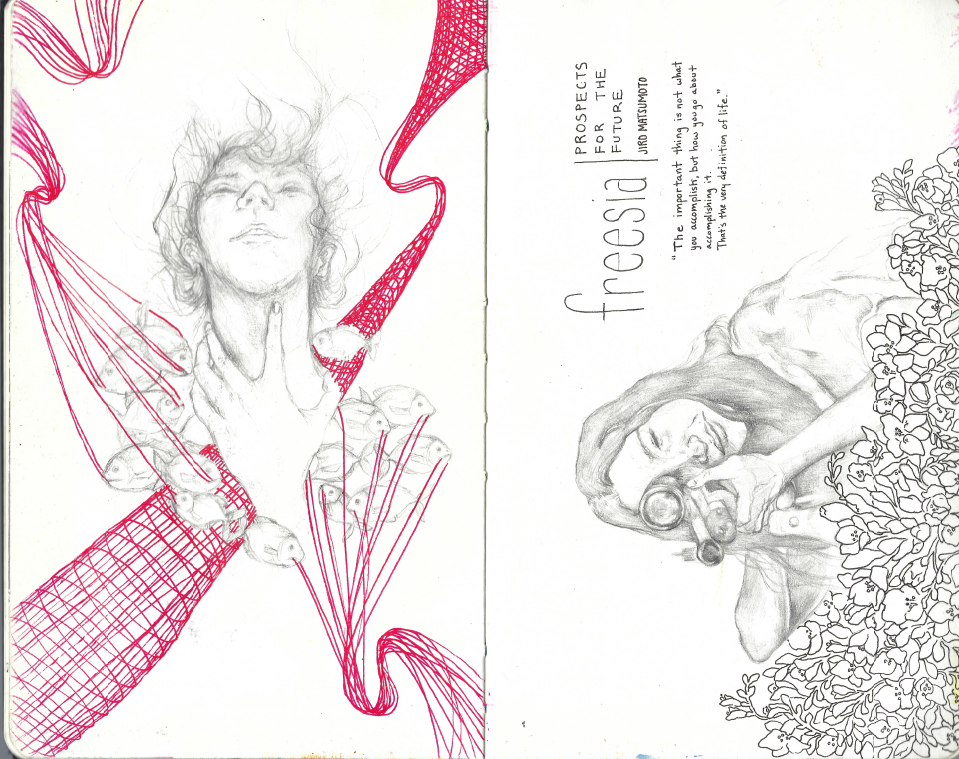 freesia
PROSPECTS
FOR THE
FUTURE
JIRO MATSUMOTO
"The important thing is not what
you accomplish, but how you go about
accomplishing it.
That's the very definition of life."